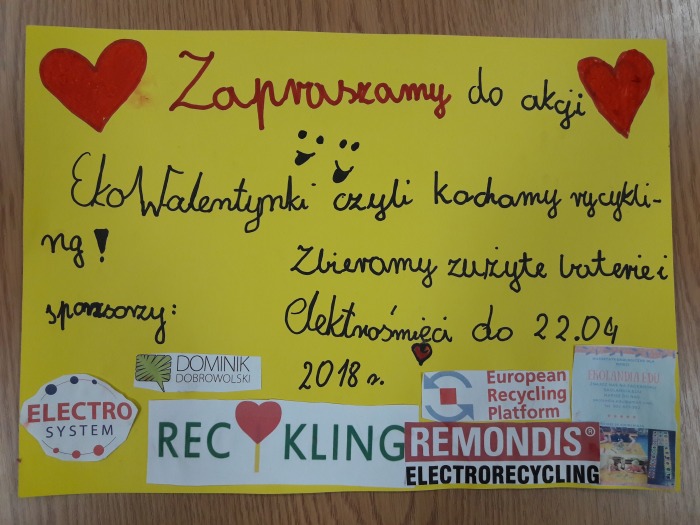 Zapraszamy do akcji
EkoWalentynki czyli kochamy rycykli-
ng!
Zbieramy zużyte baterie i
sponsorzy:
Elektrośmieci do 22.04
2018 r.
DOMINIK
DOBROWOLSKI
ELECTRO
SYSTEM
REC KLING
European
Recycling
Platform
EKOLANDIA.EDU
REMONDIS®
ELECTRORECYCLING